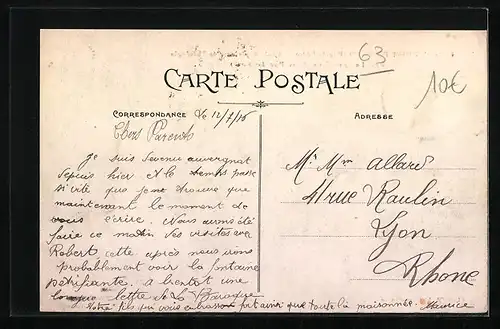 63
10€
CARTE POSTALE
CORRESPONDANCE
ADRESSE
le 12/9/15
Chers Parents
Je suis devenu auvergnat
depuis hier le temps passe
si vite que je ne trouve que
maintenant le moment de
vous écrire. Nous avons été
faire ce matin des visites avec
Robert, cette après nous irons
probablement voir la fontaine
pétrifiante. A bientot une
longue lettre de
Votre fils qui vous embrasse fort ainsi que toute la maisonnée. Maurice
Mr Mme Allard
41 rue Raulin
Lyon
Rhone